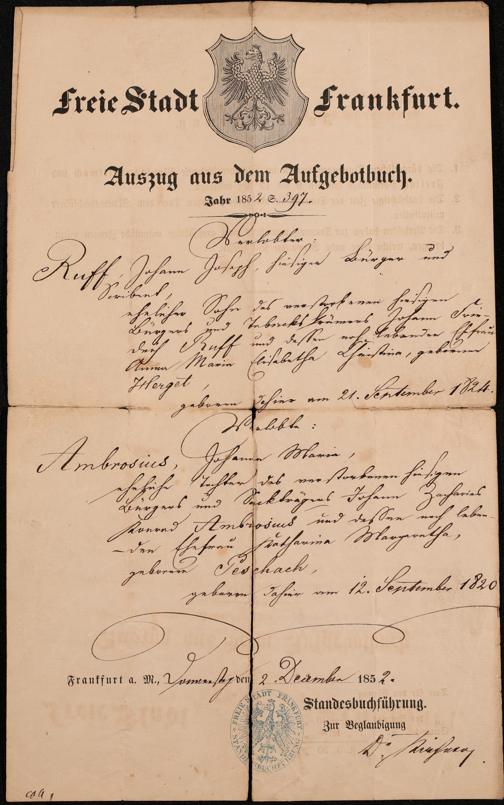 Freie Stadt Frankfurt.
Auszug aus dem Aufgebotbuch.
Jahr 1852 S. 397.
Verlobter:
Ruff, Johann Joseph, hiesiger Bürger und
Scribent,
ehelicher Sohn des verstorbenen hiesigen
Bürgers und Tabackskrämers Johann Frie-
drich Ruff und dessen noch lebender Ehefrau
Anna Maria Elisabetha Christina, geborenen
Herget,
geboren dahier am 21. September 1824.
Verlobte:
Ambrosius, Johanna Maria,
eheliche Tochter des verstorbenen hiesigen
Bürgers und Sackträgers Johann Zacharias
Konrad Ambrosius und dessen noch leben-
den Ehefrau Katharina Margaretha,
geborenen Peschach,
geboren dahier am 12. September 1820
Frankfurt a. M., Donnerstag den 2 December 1852.
Standesbuchführung.
Zur Beglaubigung
Dr
FREIE STADT FRANKFURT
STANDESBUCHFÜHRUNG